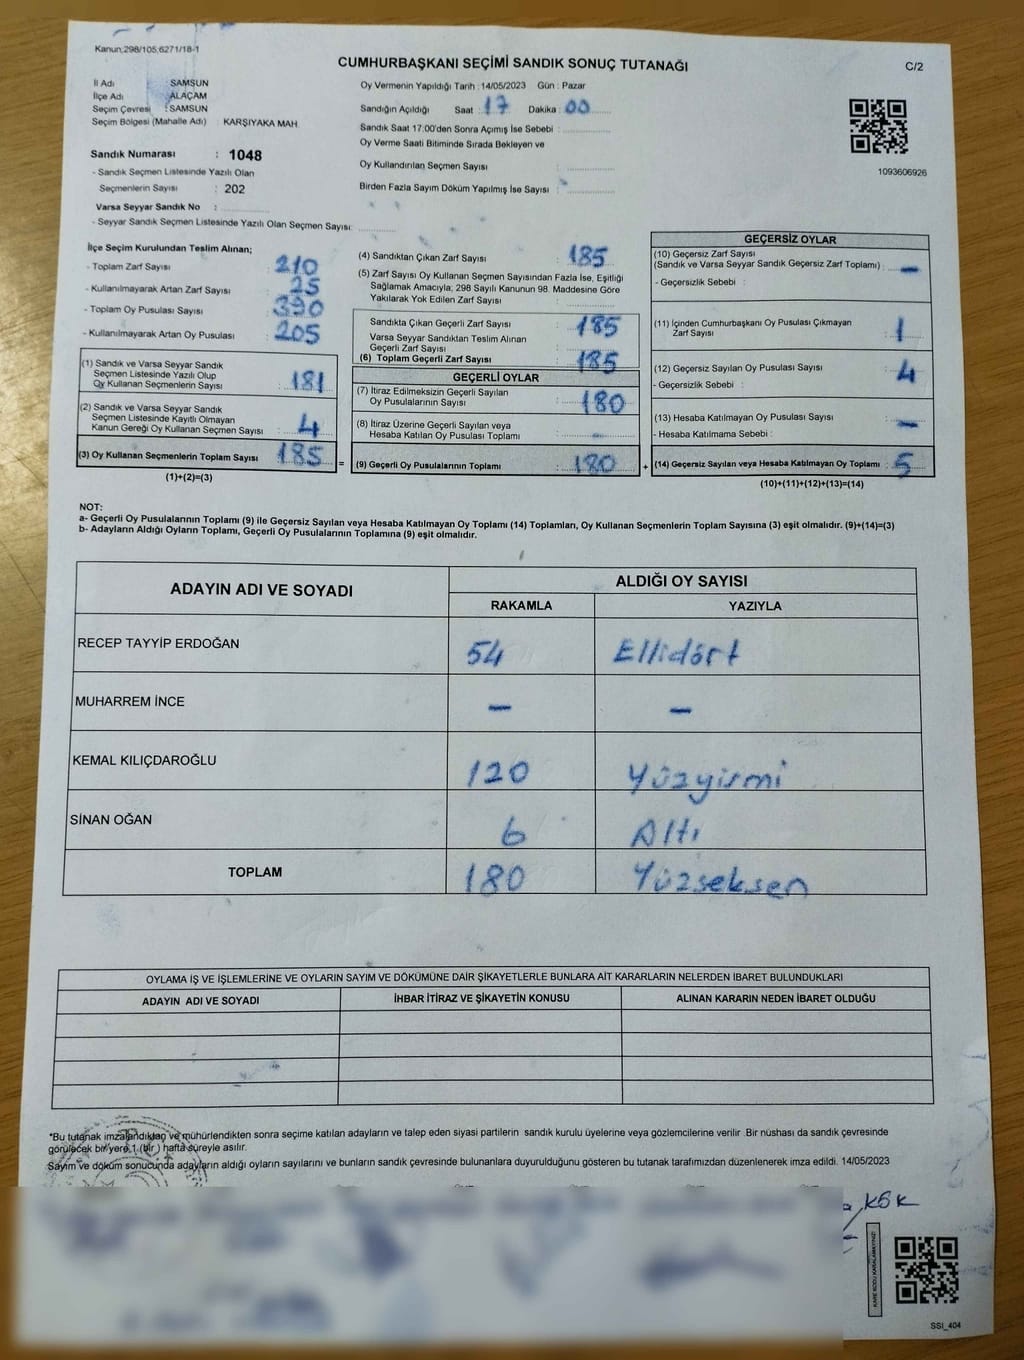 Kanun;298/105;6271/18-1
CUMHURBAŞKANI SEÇİMİ SANDIK SONUÇ TUTANAĞI
C/2
İl Adı : SAMSUN
İlçe Adı : ALAÇAM
Seçim Çevresi : SAMSUN
Seçim Bölgesi (Mahalle Adı) : KARŞIYAKA MAH.
Sandık Numarası : 1048
- Sandık Seçmen Listesinde Yazılı Olan
Seçmenlerin Sayısı : 202
Varsa Seyyar Sandık No :
- Seyyar Sandık Seçmen Listesinde Yazılı Olan Seçmen Sayısı:
Oy Vermenin Yapıldığı Tarih : 14/05/2023 Gün : Pazar
Sandığın Açıldığı Saat : 17 Dakika : 00
Sandık Saat 17:00'den Sonra Açımış İse Sebebi :
Oy Verme Saati Bitiminde Sırada Bekleyen ve
Oy Kullandırılan Seçmen Sayısı :
Birden Fazla Sayım Döküm Yapılmış İse Sayısı :
1093606926
İlçe Seçim Kurulundan Teslim Alınan;
- Toplam Zarf Sayısı : 210
- Kullanılmayarak Artan Zarf Sayısı : 25
- Toplam Oy Pusulası Sayısı : 390
- Kullanılmayarak Artan Oy Pusulası : 205
(1) Sandık ve Varsa Seyyar Sandık
Seçmen Listesinde Yazılı Olup
Oy Kullanan Seçmenlerin Sayısı : 181
(2) Sandık ve Varsa Seyyar Sandık
Seçmen Listesinde Kayıtlı Olmayan
Kanun Gereği Oy Kullanan Seçmen Sayısı : 4
(3) Oy Kullanan Seçmenlerin Toplam Sayısı : 185
(1)+(2)=(3)
(4) Sandıktan Çıkan Zarf Sayısı : 185
(5) Zarf Sayısı Oy Kullanan Seçmen Sayısından Fazla İse, Eşitliği
Sağlamak Amacıyla; 298 Sayılı Kanunun 98. Maddesine Göre
Yakılarak Yok Edilen Zarf Sayısı :
Sandıkta Çıkan Geçerli Zarf Sayısı : 185
Varsa Seyyar Sandıktan Teslim Alınan
Geçerli Zarf Sayısı :
(6) Toplam Geçerli Zarf Sayısı : 185
GEÇERLİ OYLAR
(7) İtiraz Edilmeksizin Geçerli Sayılan
Oy Pusulalarının Sayısı : 180
(8) İtiraz Üzerine Geçerli Sayılan veya
Hesaba Katılan Oy Pusulası Toplamı : -
= (9) Geçerli Oy Pusulalarının Toplamı : 180
GEÇERSİZ OYLAR
(10) Geçersiz Zarf Sayısı
(Sandık ve Varsa Seyyar Sandık Geçersiz Zarf Toplamı) : -
- Geçersizlik Sebebi :
(11) İçinden Cumhurbaşkanı Oy Pusulası Çıkmayan
Zarf Sayısı : 1
(12) Geçersiz Sayılan Oy Pusulası Sayısı : 4
- Geçersizlik Sebebi :
(13) Hesaba Katılmayan Oy Pusulası Sayısı : -
- Hesaba Katılmama Sebebi :
+ (14) Geçersiz Sayılan veya Hesaba Katılmayan Oy Toplamı : 5
(10)+(11)+(12)+(13)=(14)
NOT:
a- Geçerli Oy Pusulalarının Toplamı (9) ile Geçersiz Sayılan veya Hesaba Katılmayan Oy Toplamı (14) Toplamları, Oy Kullanan Seçmenlerin Toplam Sayısına (3) eşit olmalıdır. (9)+(14)=(3)
b- Adayların Aldığı Oyların Toplamı, Geçerli Oy Pusulalarının Toplamına (9) eşit olmalıdır.
ADAYIN ADI VE SOYADI ALDIĞI OY SAYISI
RAKAMLA YAZIYLA
RECEP TAYYİP ERDOĞAN 54 Ellidört
MUHARREM İNCE - -
KEMAL KILIÇDAROĞLU 120 Yüzyirmi
SİNAN OĞAN 6 Altı
TOPLAM 180 Yüzseksen
OYLAMA İŞ VE İŞLEMLERİNE VE OYLARIN SAYIM VE DÖKÜMÜNE DAİR ŞİKAYETLERLE BUNLARA AİT KARARLARIN NELERDEN İBARET BULUNDUKLARI
ADAYIN ADI VE SOYADI İHBAR İTİRAZ VE ŞİKAYETİN KONUSU ALINAN KARARIN NEDEN İBARET OLDUĞU
*Bu tutanak imzalandıktan ve mühürlendikten sonra seçime katılan adayların ve talep eden siyasi partilerin sandık kurulu üyelerine veya gözlemcilerine verilir .Bir nüshası da sandık çevresinde
görülecek bir yere 1 (bir) hafta süreyle asılır.
Sayım ve döküm sonucunda adayların aldığı oyların sayılarını ve bunların sandık çevresinde bulunanlara duyurulduğunu gösteren bu tutanak tarafımızdan düzenlenerek imza edildi. 14/05/2023
KSK
KARE KODU KARALAMAYINIZ!
SSI_404